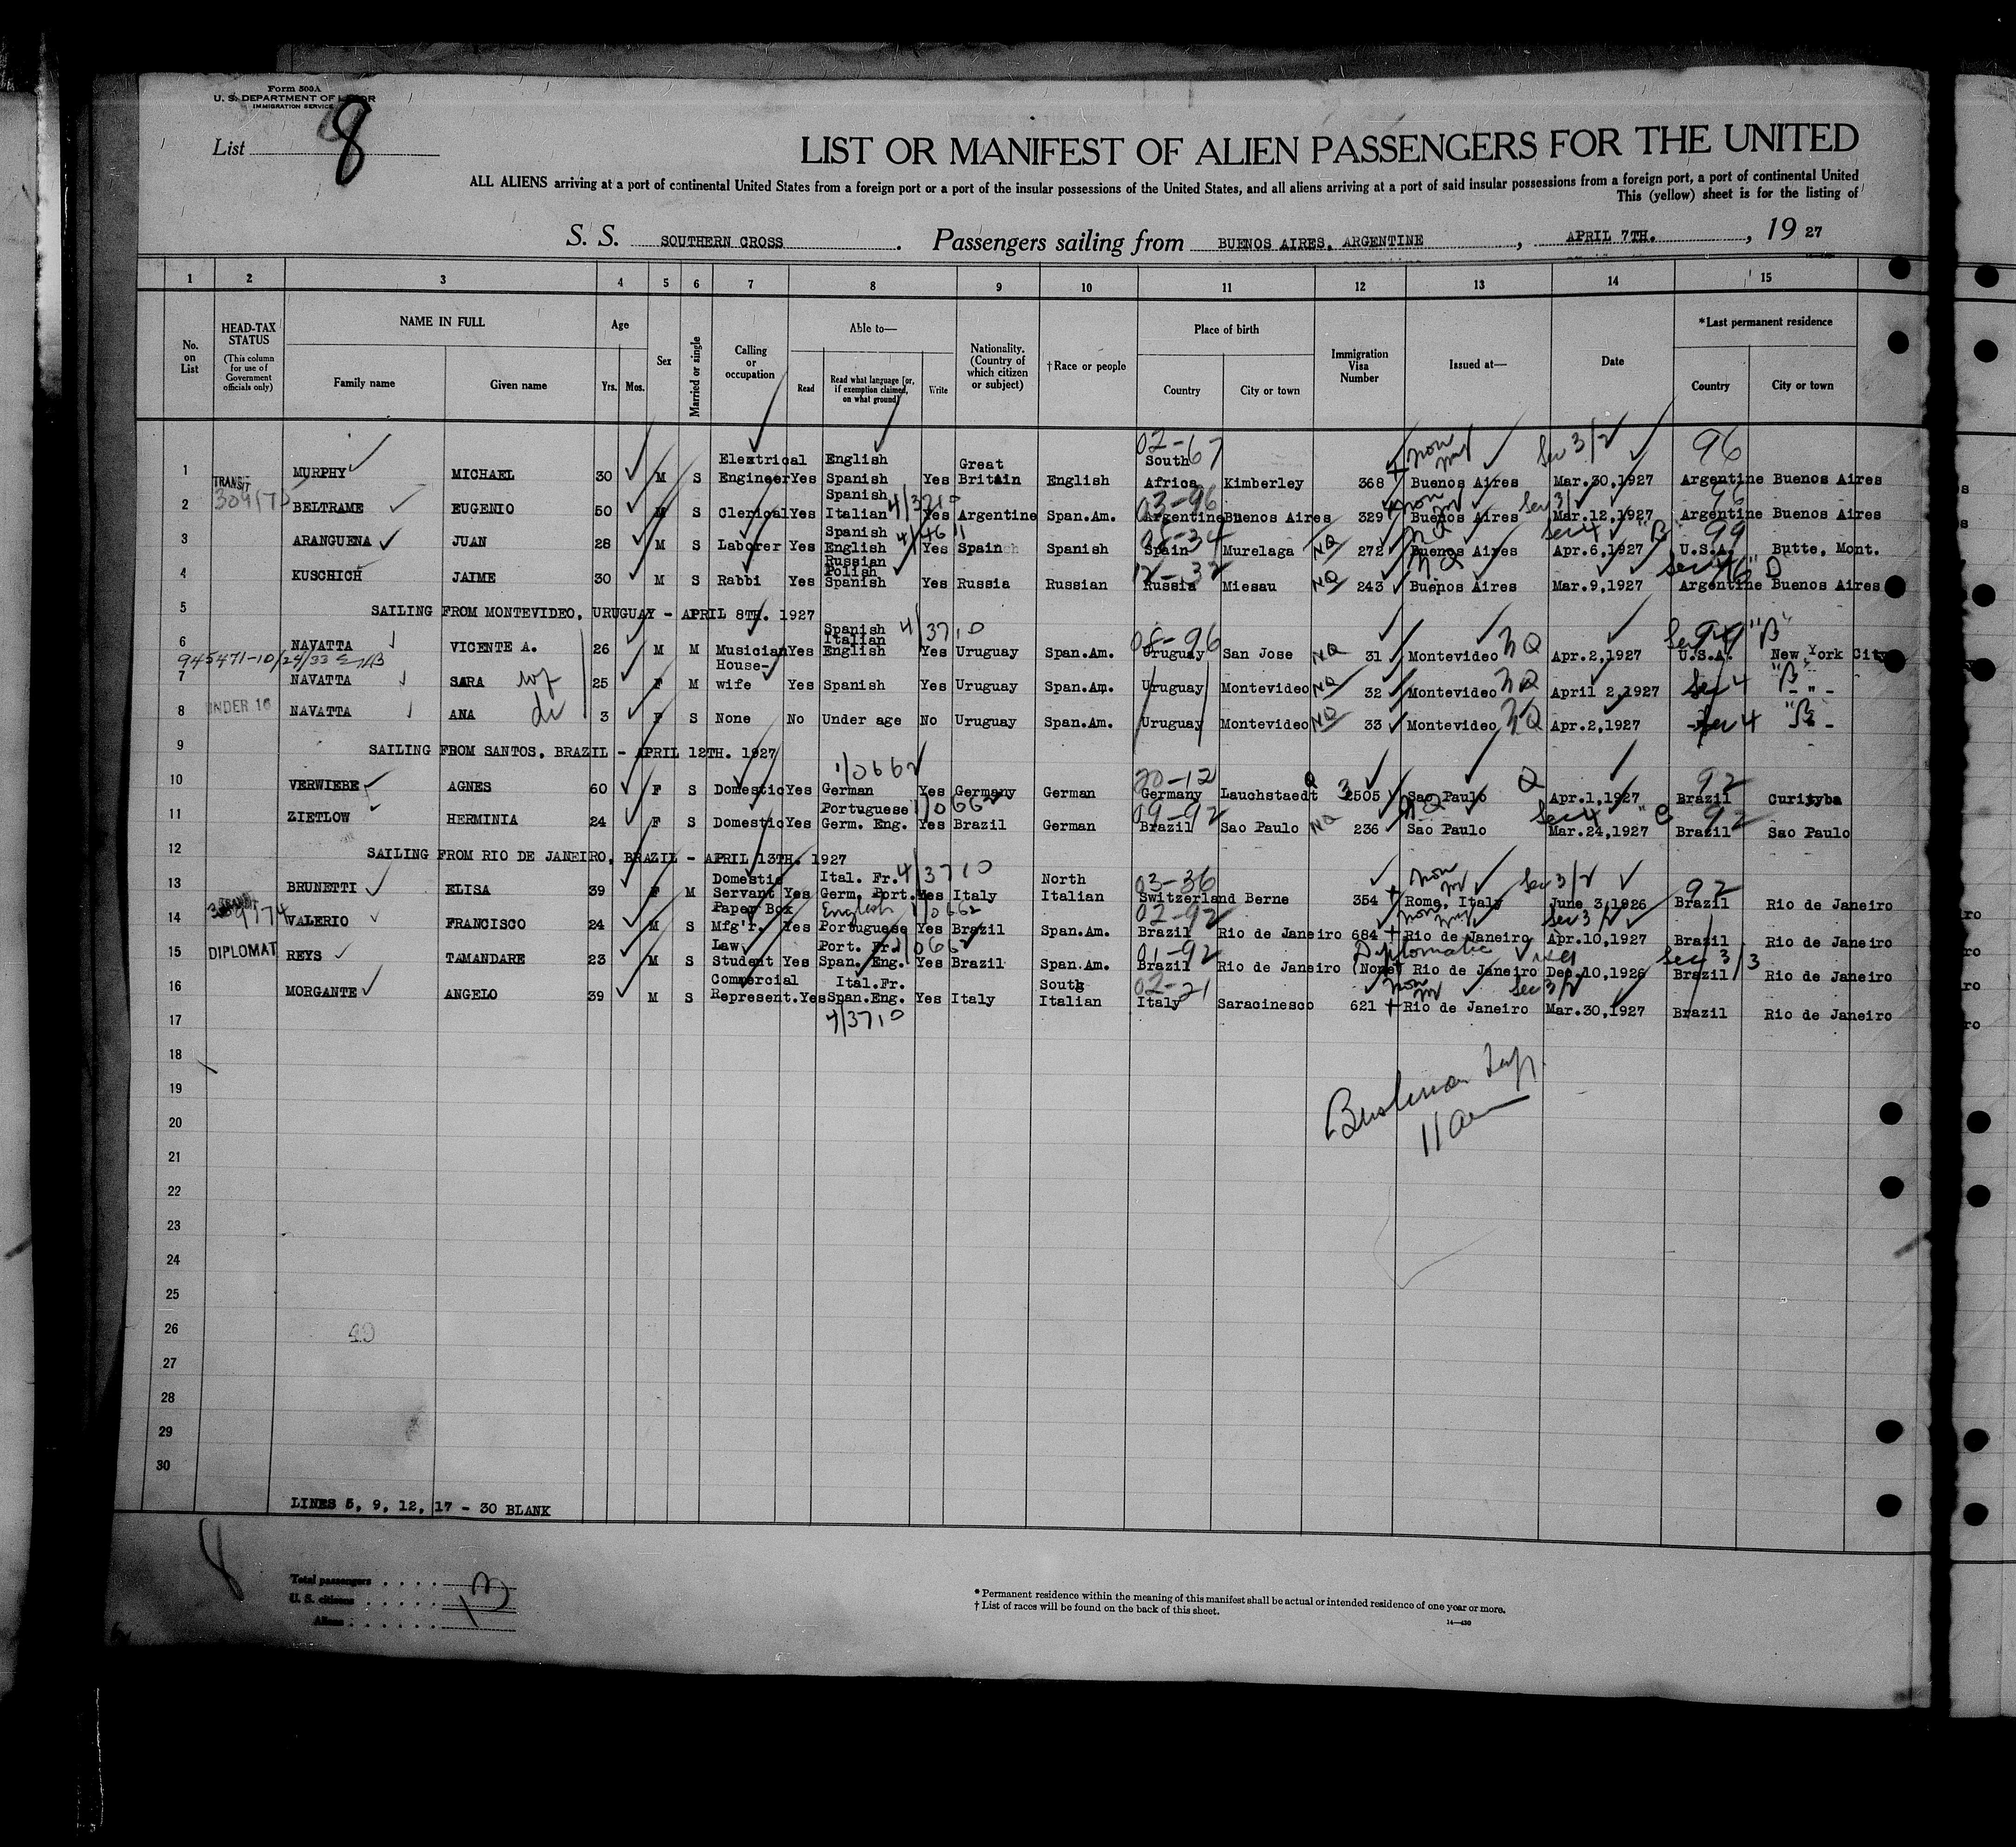 Form 500A
U. S. DEPARTMENT OF LABOR
IMMIGRATION SERVICE
List 8
LIST OR MANIFEST OF ALIEN PASSENGERS FOR THE UNITED
ALL ALIENS arriving at a port of continental United States from a foreign port or a port of the insular possessions of the United States, and all aliens arriving at a port of said insular possessions from a foreign port, a port of continental United
This (yellow) sheet is for the listing of
S. S. SOUTHERN CROSS. Passengers sailing from BUENOS AIRES, ARGENTINE, APRIL 7TH., 19 27
1 2 3 4 5 6 7 8 9 10 11 12 13 14 15
No. on List
HEAD-TAX STATUS (This column for use of Government officials only)
NAME IN FULL
Family name Given name
Age Yrs. Mos.
Sex
Married or single
Calling or occupation
Able to—
Read Read what language [or, if exemption claimed, on what ground] Write
Nationality. (Country of which citizen or subject)
†Race or people
Place of birth
Country City or town
Immigration Visa Number
Issued at—
Date
*Last permanent residence
Country City or town
1 MURPHY MICHAEL 30 M S Elextrical Engineer Yes English Spanish Yes Great Britain English 02-67 South Africa Kimberley 368 non Buenos Aires Sec 3/2 Mar.30,1927 96 Argentine Buenos Aires
2 TRANSIT BELTRAME EUGENIO 50 M S Clerical Yes Spanish Italian 4/3710 Yes Argentine Span.Am. 03-96 Argentine Buenos Aires 329 non Buenos Aires Mar.12,1927 96 Argentine Buenos Aires
3 ARANGUENA JUAN 28 M S Laborer Yes Spanish English Yes Spain Spanish Spain Murelaga NQ 272 NQ Buenos Aires Sec 4 "B" Apr.6,1927 99 U.S.A. Butte, Mont.
4 KUSCHICH JAIME 30 M S Rabbi Yes Russian Polish Spanish Yes Russia Russian 12-32 Russia Miesau NQ 243 NQ Buenos Aires Mar.9,1927 Sec 4 D Argentine Buenos Aires
5 SAILING FROM MONTEVIDEO, URUGUAY - APRIL 8TH. 1927
6 NAVATTA VICENTE A. 26 M M Musician Yes Spanish Italian English 4/3710 Yes Uruguay Span.Am. Uruguay San Jose NQ 31 Montevideo NQ Apr.2,1927 99 "B" U.S.A. New York City
945471-10/24/33
7 NAVATTA SARA wf 25 F M House-wife Yes Spanish Yes Uruguay Span.Am. Uruguay Montevideo NQ 32 Montevideo NQ April 2,1927 Sec 4 "B" - " -
8 UNDER 16 NAVATTA ANA 3 F S None No Under age No Uruguay Span.Am. Uruguay Montevideo NQ 33 Montevideo NQ Apr.2,1927 Sec 4 "B"
9 SAILING FROM SANTOS, BRAZIL - APRIL 12TH. 1927
10 VERWIEBE AGNES 60 F S Domestic Yes German 1/0662 Yes Germany German 20-12 Germany Lauchstaedt Q 2505 Sao Paulo Q Apr.1,1927 92 Brazil Curityba
11 ZIETLOW HERMINIA 24 F S Domestic Yes Portuguese Germ. Eng. 1/0662 Yes Brazil German 09-92 Brazil Sao Paulo NQ 236 NQ Sao Paulo Sec 4 "C Mar.24,1927 92 Brazil Sao Paulo
12 SAILING FROM RIO DE JANEIRO, BRAZIL - APRIL 13TH. 1927
13 BRUNETTI ELISA 39 F M Domestic Servant Yes Ital. Fr. Germ. Port. 4/3710 Yes Italy North Italian 03-36 Switzerland Berne 354 non Rome, Italy Sec 3/2 June 3,1926 92 Brazil Rio de Janeiro
14 TRANSIT VALERIO FRANCISCO 24 M S Paper Box Mfg'r. Yes English Portuguese 1/0662 Yes Brazil Span.Am. 02-92 Brazil Rio de Janeiro 684 non Rio de Janeiro Sec 3/2 Apr.10,1927 Brazil Rio de Janeiro
15 DIPLOMAT REYS TAMANDARE 23 M S Law Student Yes Port. Fr. Span. Eng. 1/0662 Yes Brazil Span.Am. 01-92 Brazil Rio de Janeiro (None) Diplomatic visa Rio de Janeiro Dec.10,1926 Sec 3/3 Brazil Rio de Janeiro
16 MORGANTE ANGELO 39 M S Commercial Represent. Yes Ital.Fr. Span.Eng. 4/3710 Yes Italy South Italian 02-21 Italy Saracinesco 621 non Rio de Janeiro Sec 3/2 Mar.30,1927 Brazil Rio de Janeiro
17
18
19
20
21
22
23
24
25
26
27
28
29
30
11 am
LINES 5, 9, 12, 17 - 30 BLANK
8
Total passengers
U. S. citizens
Aliens
13
* Permanent residence within the meaning of this manifest shall be actual or intended residence of one year or more.
† List of races will be found on the back of this sheet.
14—430